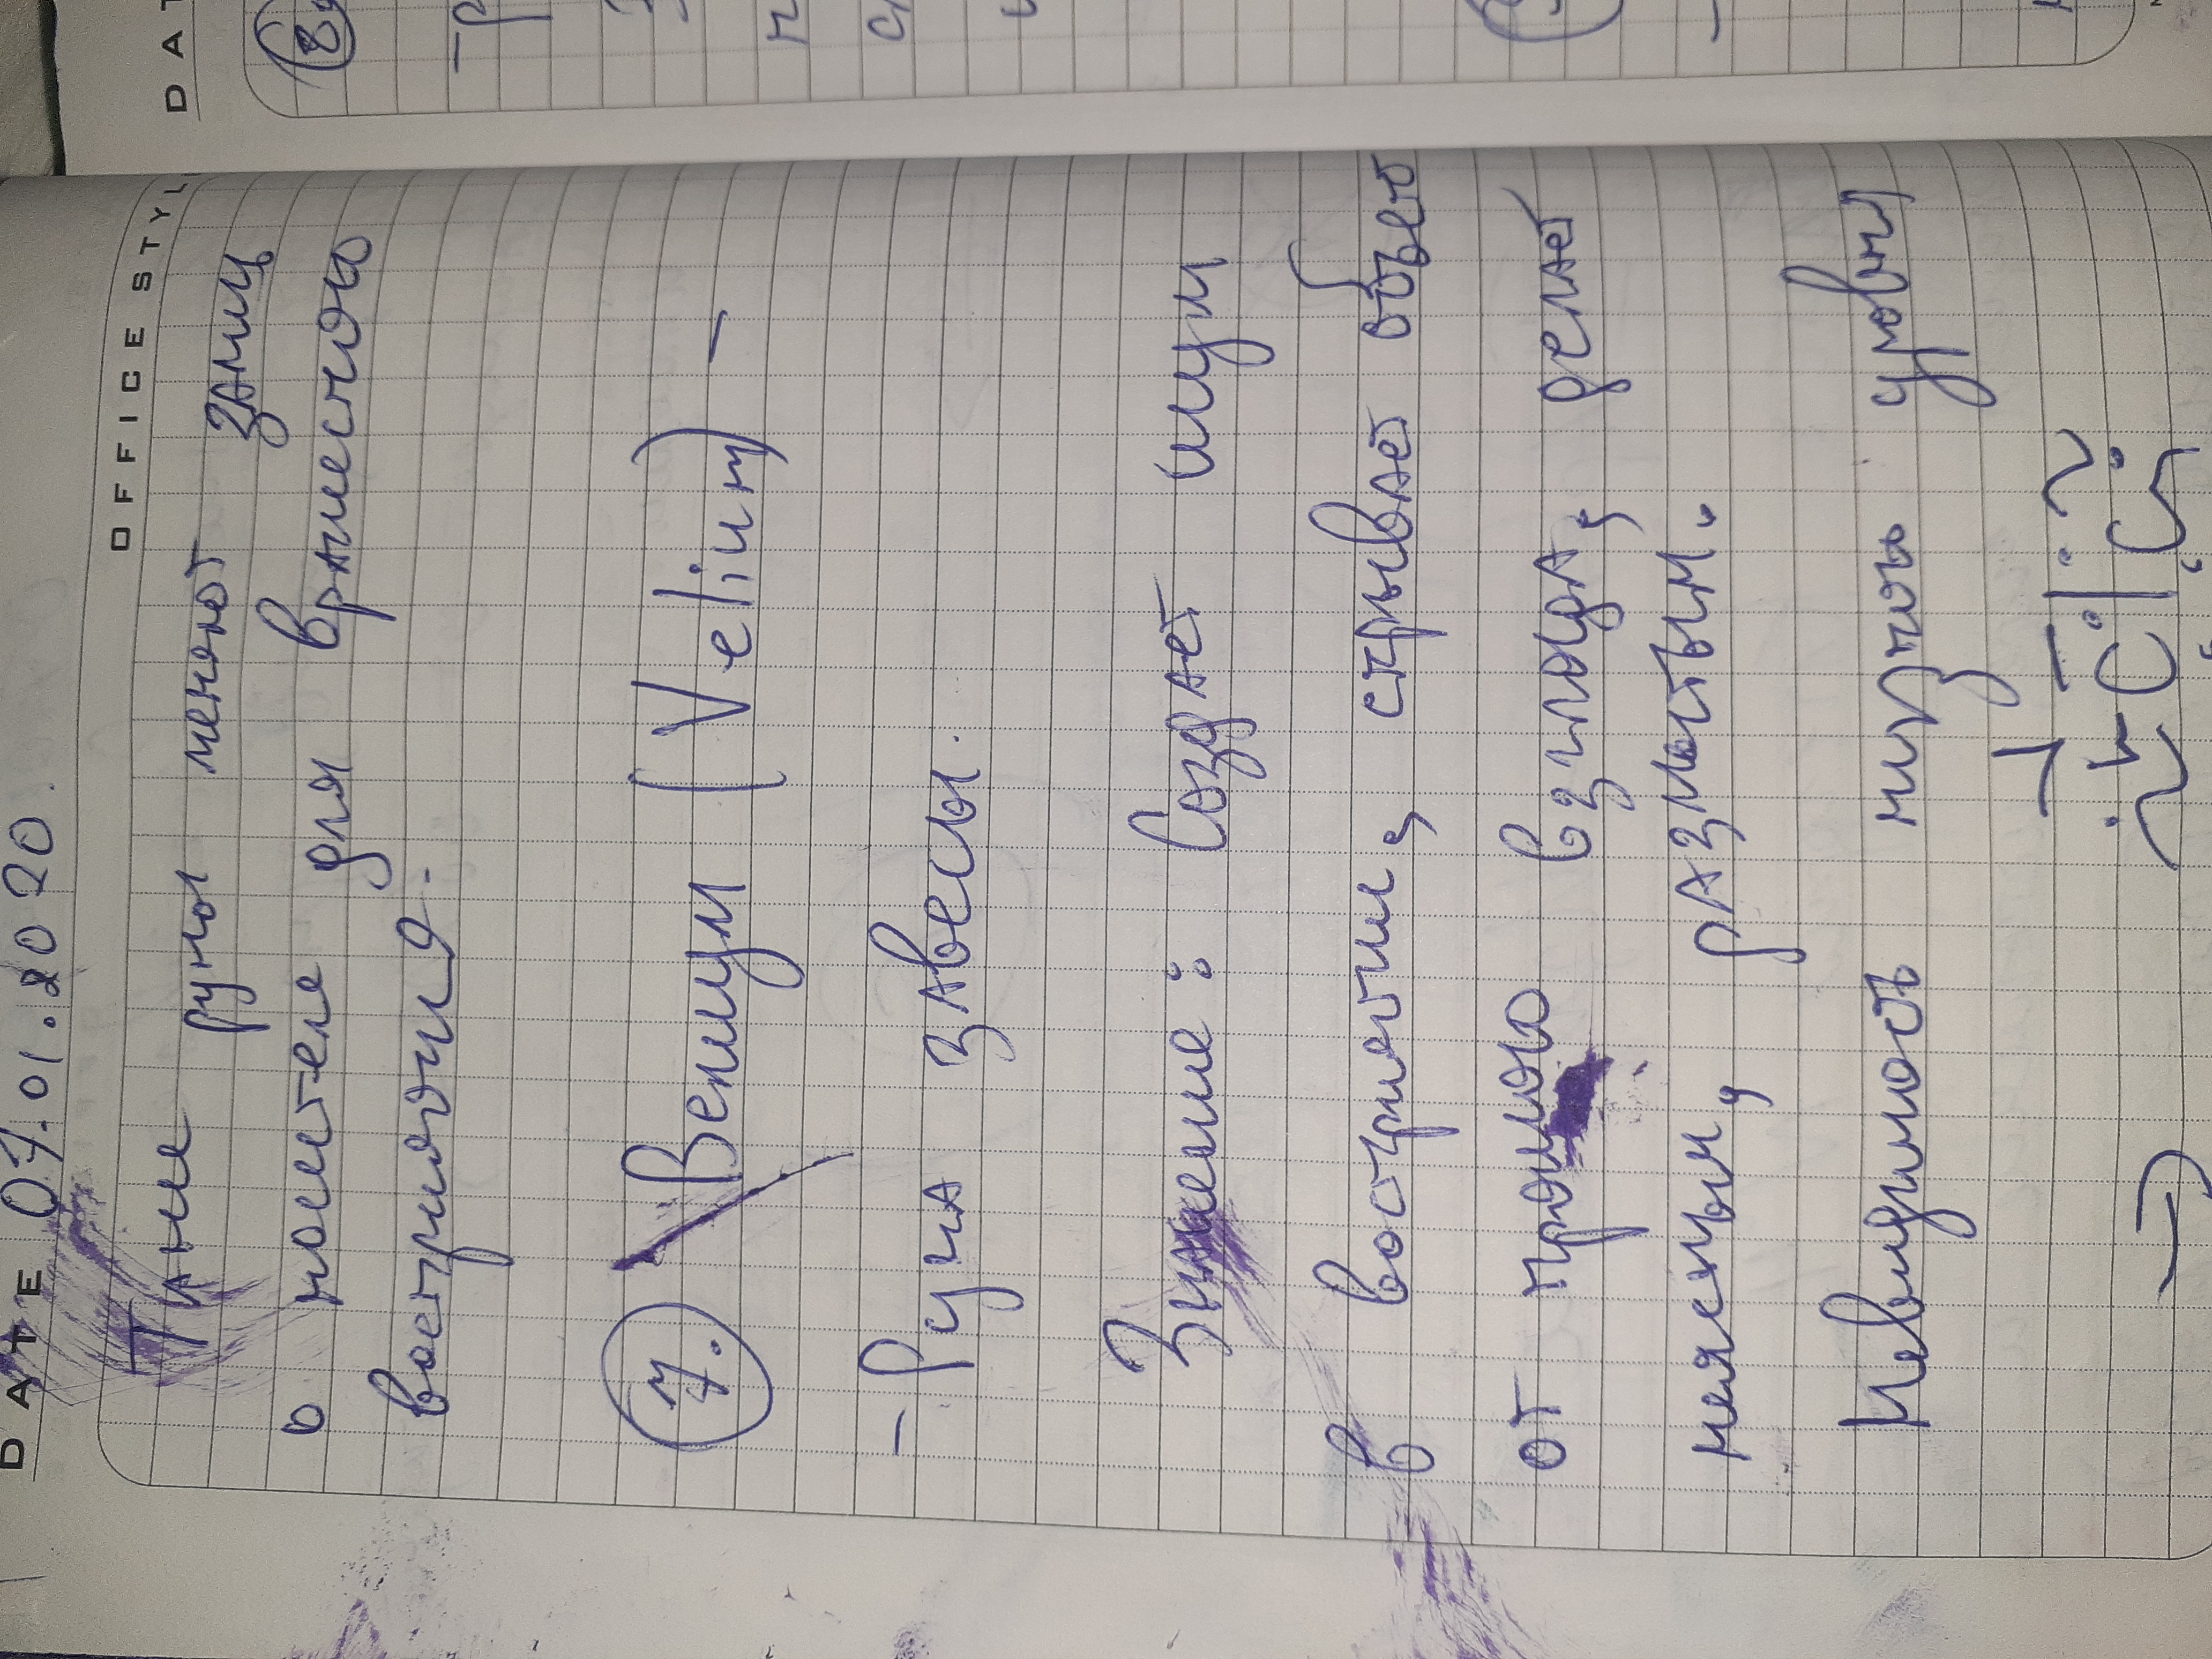 OFFICE STYL
DATE 07.01.2020.
Такие руны меняют запись
о носителе для вражеского
восприятия.
7. Велиум (Velium) —
– Руна завесы.
Значение: Создает шум
в восприятии, скрывает объект
от прямого взгляда, делает
неясным, размытым.
Невидимость низкого уровня
DAT
8